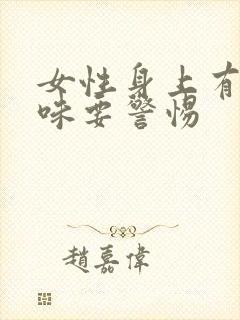 女性身上有
味要警惕
趙嘉偉